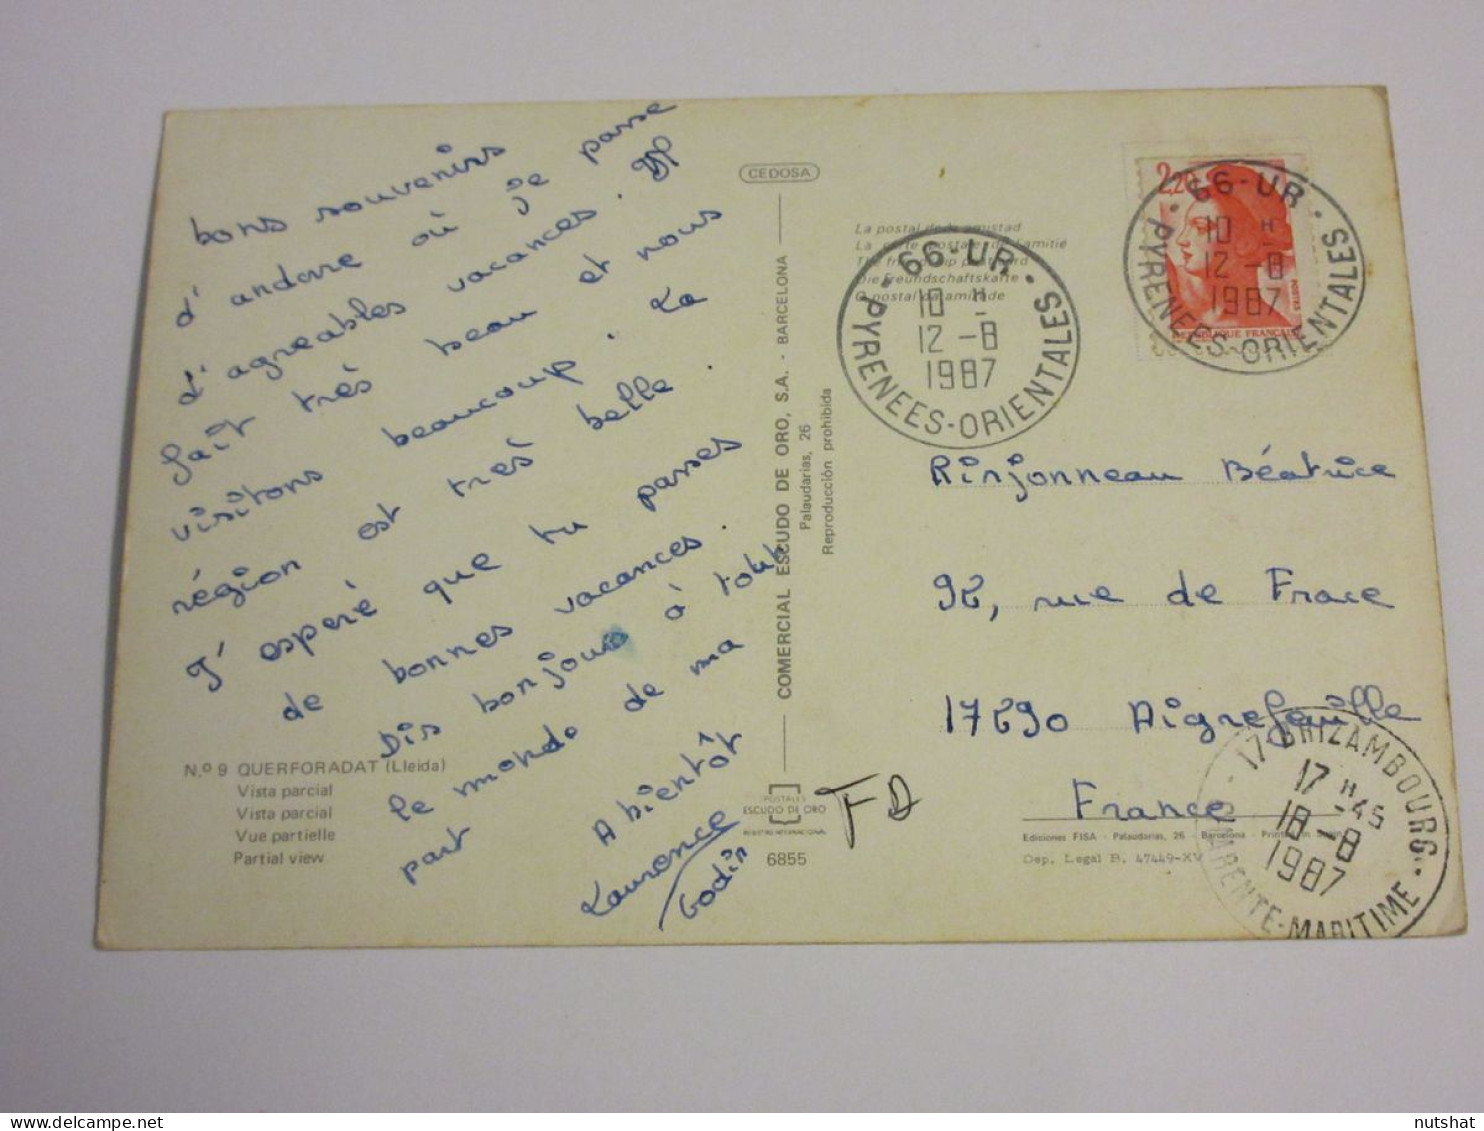 bons souvenirs
d'andorre où je passe
d'agreables vacances. Il
fait très beau et nous
visitons beaucoup. La
région est très belle.
J'esperè que tu passes
de bonnes vacances.
Dis bonjour à tout
le monde de ma
part
A bientôt
Laurence
Godin
N.º 9 QUERFORADAT (Lleida)
Vista parcial
Vista parcial
Vue partielle
Partial view
CEDOSA
COMERCIAL ESCUDO DE ORO, S.A. - BARCELONA
Palaudarias, 26
Reproducción prohibida
POSTALES
ESCUDO DE ORO
REGISTRO INTERNACIONAL
6855
La postal de la amistad
La carte postale de l'amitié
The friendship postcard
Die Freundschaftskarte
O postal da amizade
66-UR
10 H
12-8
1987
PYRENEES-ORIENTALES
2,20
POSTES
REPUBLIQUE FRANCAISE
66-UR
10 H
12-8
1987
PYRENEES-ORIENTALES
Rinjonneau Béatrice
92, rue de Frace
17290 Aigrefeuille
France
FD
Ediciones FISA - Palaudarias, 26 - Barcelona - Printed in
Dep. Legal B. 47449-XV
17-BRIZAMBOURG
17 H 45
18-8
1987
CHARENTE-MARITIME
nutshat